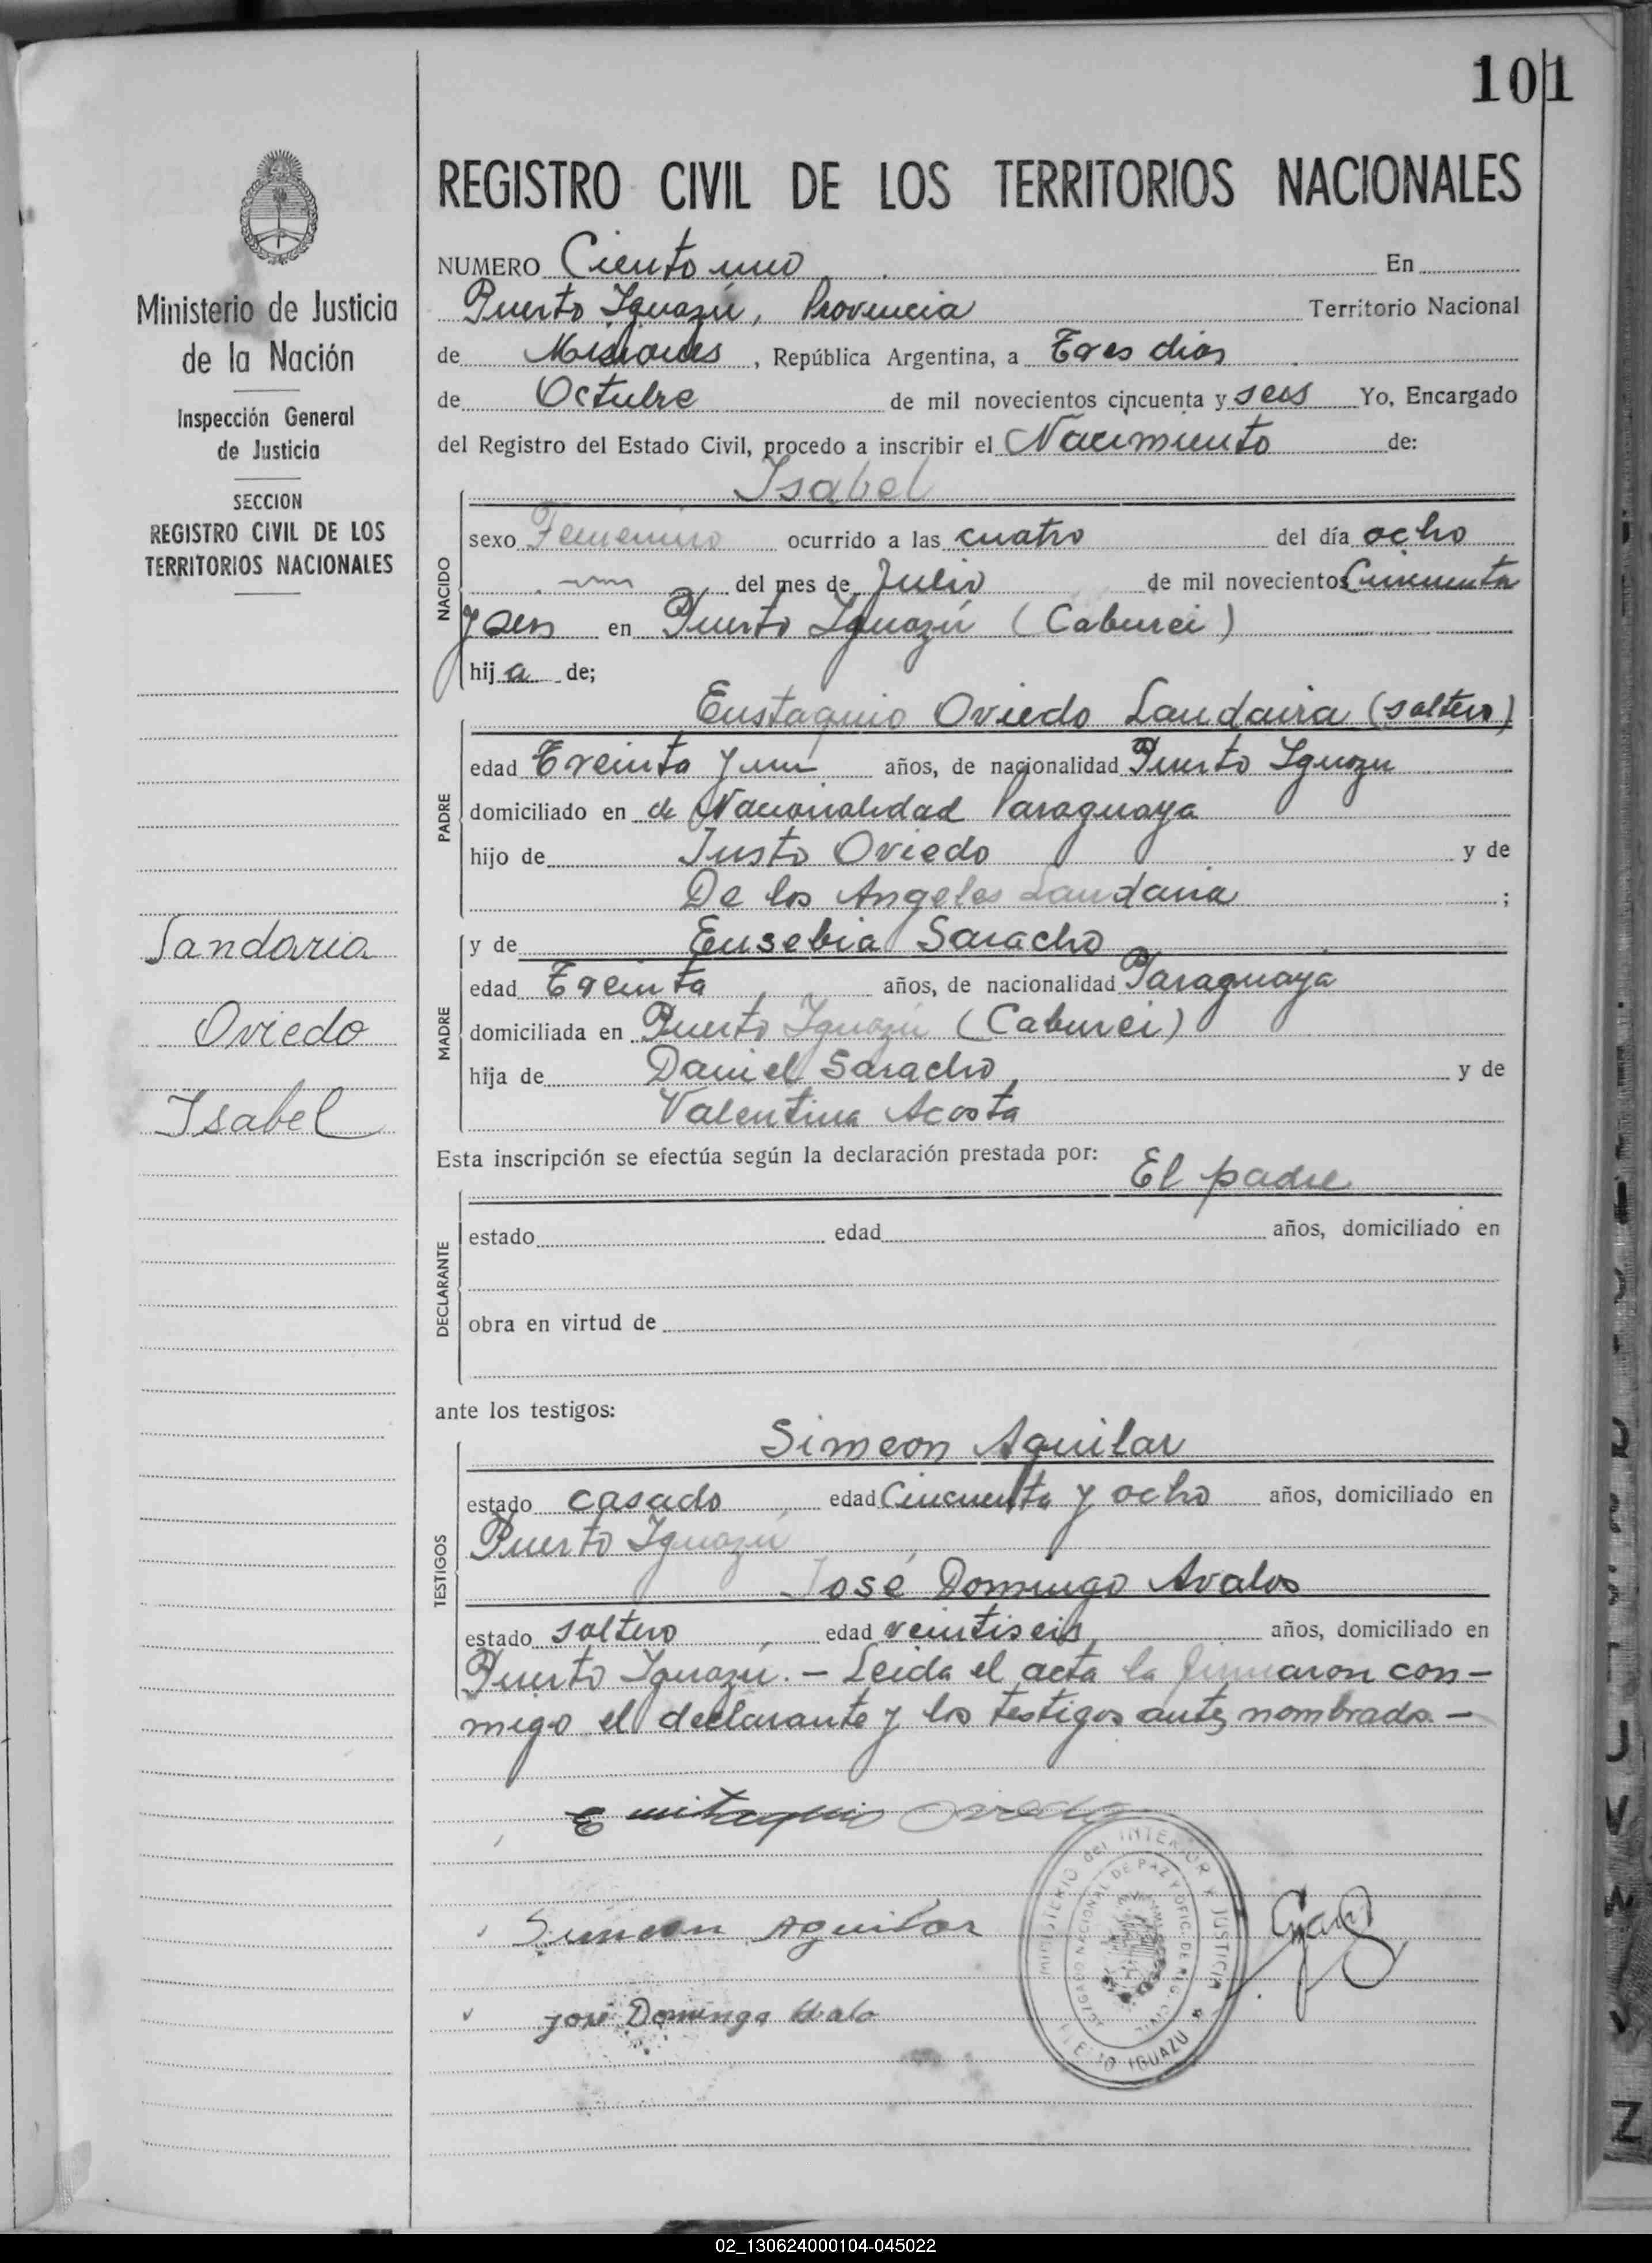 101
REGISTRO CIVIL DE LOS TERRITORIOS NACIONALES
Ministerio de Justicia
de la Nación
Inspección General
de Justicia
SECCION
REGISTRO CIVIL DE LOS
TERRITORIOS NACIONALES
Sandaria
Oviedo
Isabel
NUMERO Ciento uno En
Puerto Iguazú, Provincia Territorio Nacional
de Misiones, República Argentina, a Tres dias
de Octubre de mil novecientos cincuenta y seis Yo, Encargado
del Registro del Estado Civil, procedo a inscribir el Nacimiento de:
NACIDO
Isabel
sexo Femenino ocurrido a las cuatro del día ocho
del mes de Julio de mil novecientos Cincuenta
y seis en Puerto Iguazú (Caburei)
hija de;
PADRE
Eustaquio Oviedo Landaira (soltero)
edad Treinta y un años, de nacionalidad Puerto Iguazu
domiciliado en de Nacionalidad Paraguaya
hijo de Justo Oviedo y de
De los Angeles Landaria ;
MADRE
y de Eusebia Saracho
edad Treinta años, de nacionalidad Paraguaya
domiciliada en Puerto Iguazú (Caburei)
hija de Daniel Saracho y de
Valentina Acosta
Esta inscripción se efectúa según la declaración prestada por:
El padre
DECLARANTE
estado edad años, domiciliado en
obra en virtud de
ante los testigos:
TESTIGOS
Simeon Aguilar
estado casado edad Cincuenta y ocho años, domiciliado en
Puerto Iguazú
José Domingo Avalos
estado soltero edad veintiseis años, domiciliado en
Puerto Iguazú. - Leida el acta la firmaron con-
migo el declarante y los testigos antes nombrados. -
Eustaquio Oviedo
MINISTERIO del INTERIOR Y JUSTICIA
JUZGADO NACIONAL DE PAZ Y OFIC. DE REG. CIVIL
IGUAZU
Simeon Aguilar
José Domingo
02_130624000104-045022